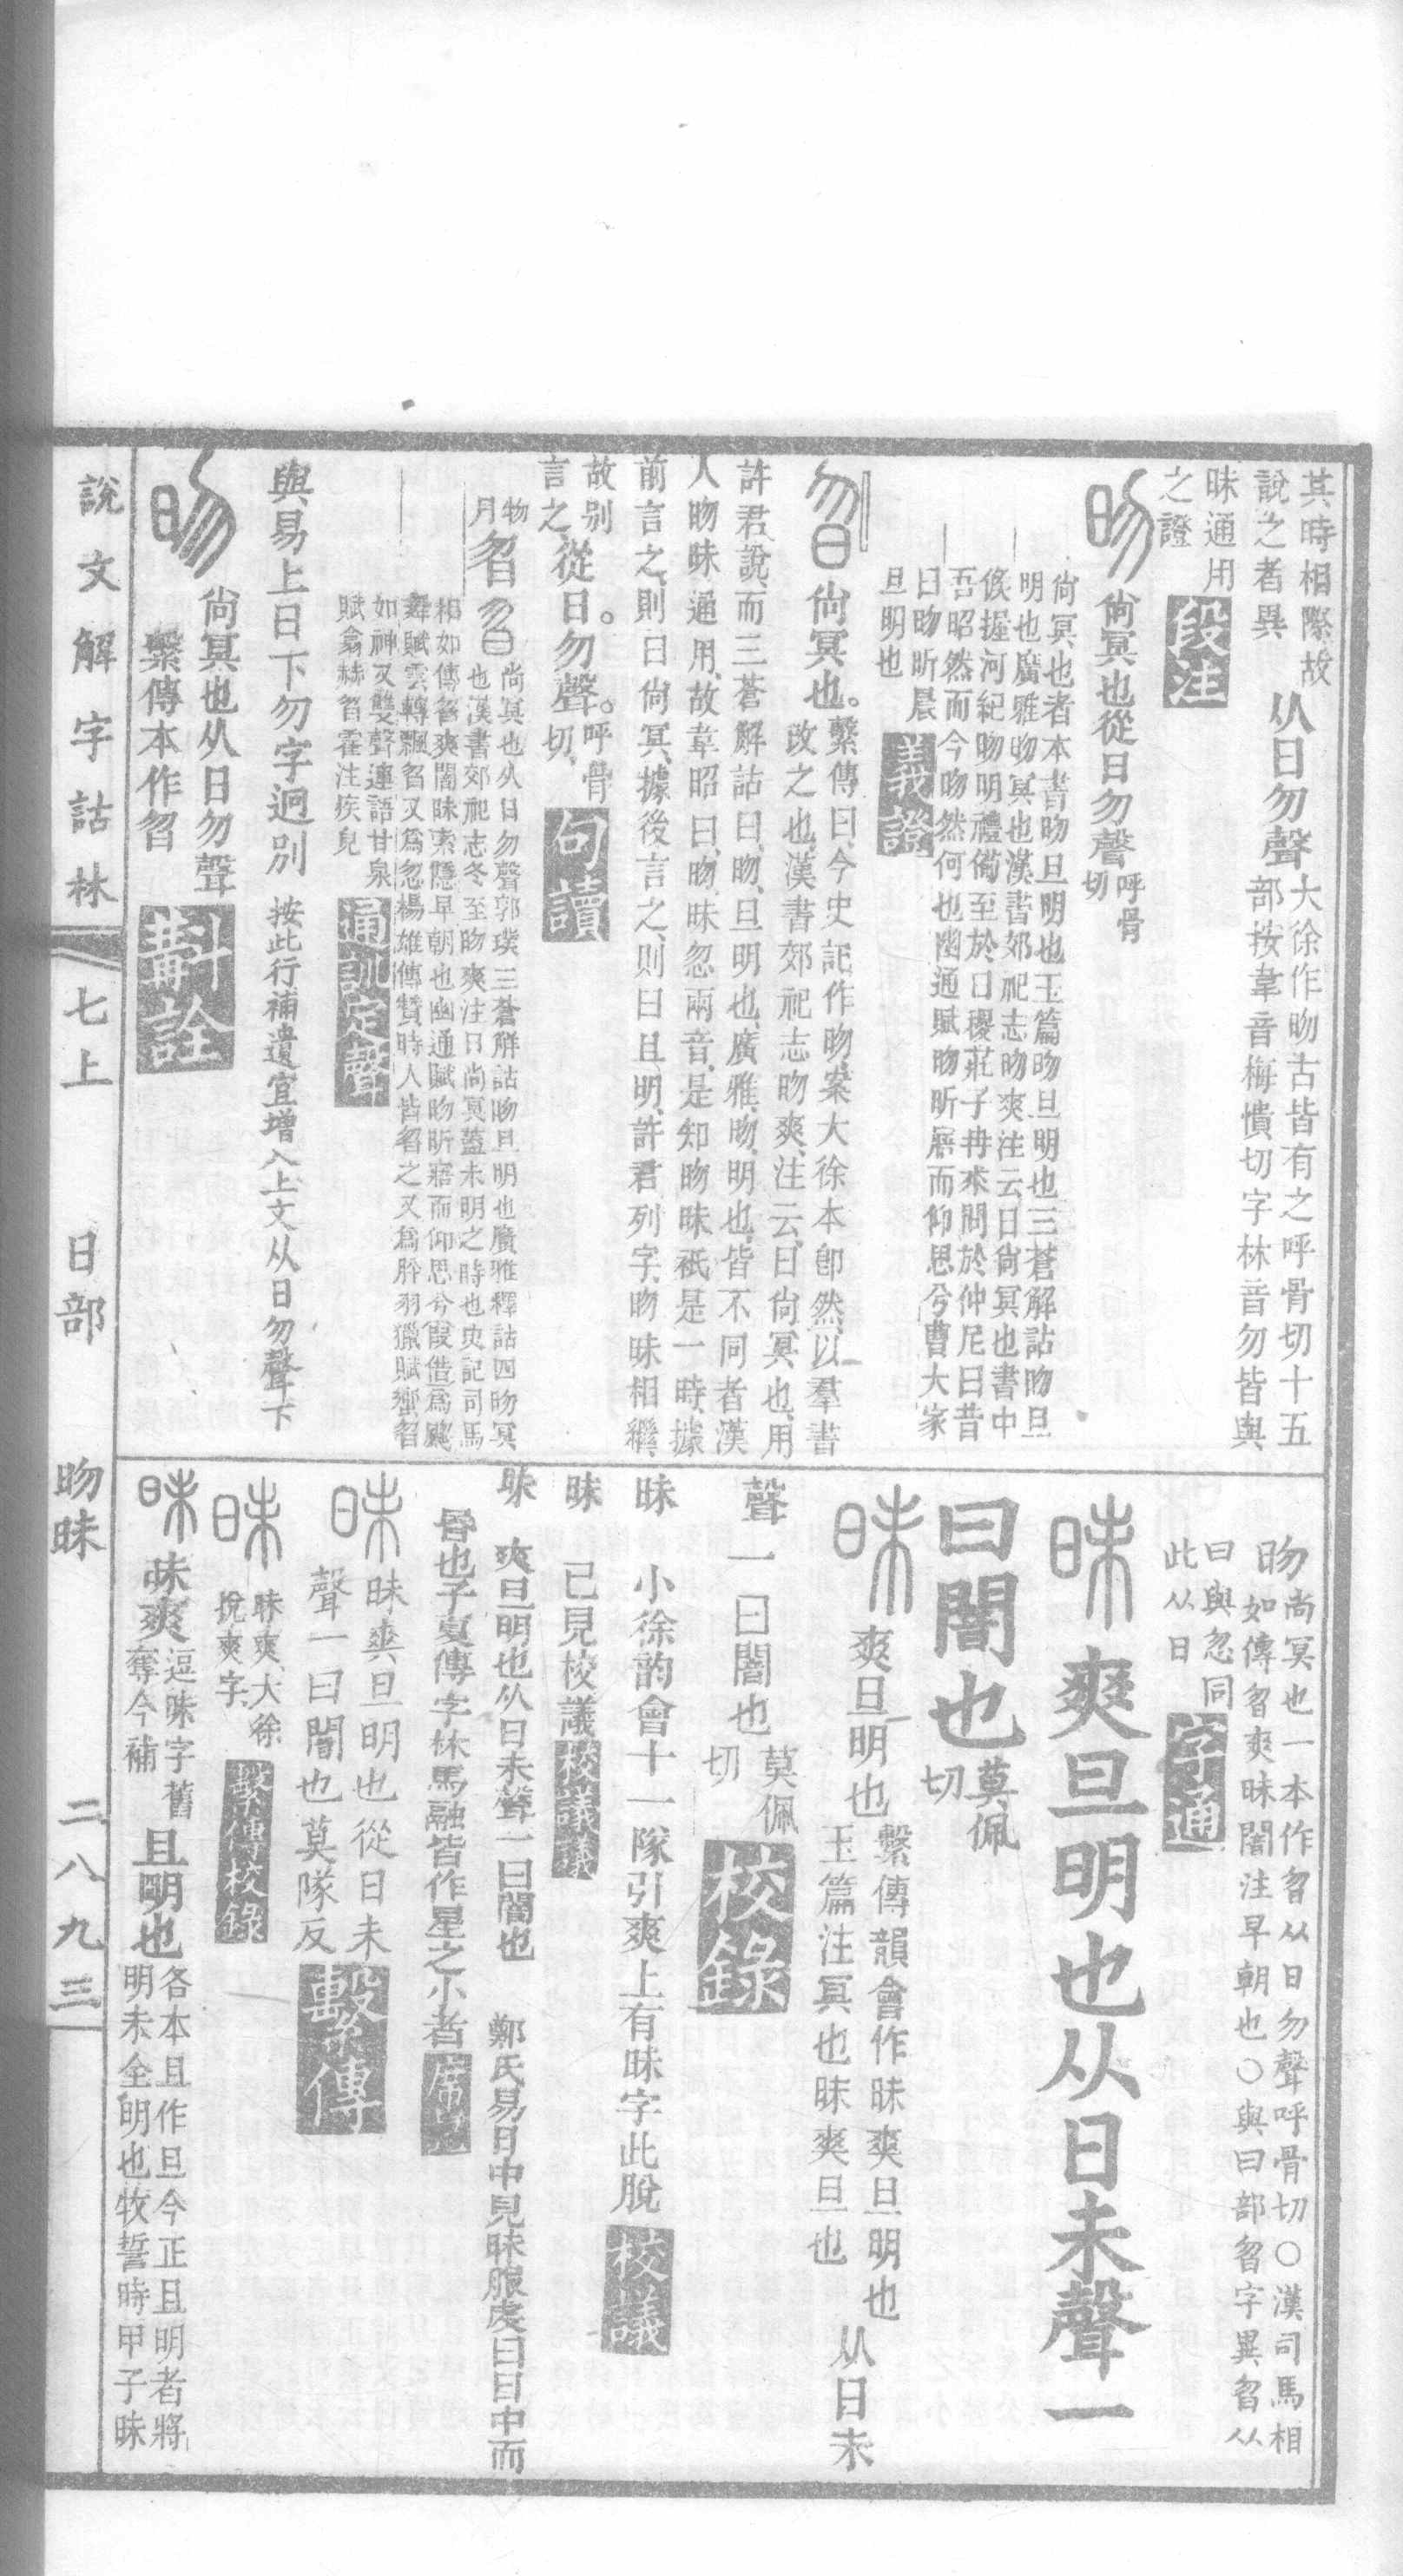 其時相際故
說之者異
昧通用
之證
从日勿聲
大徐作昒古皆有之呼骨切十五
部按韋音梅憒切字林音勿皆與
段注
昒
尙冥也從日勿聲
呼骨
切
尙冥也者本書昒旦明也玉篇昒旦明也三蒼解詁昒旦
明也廣雅昒冥也漢書郊祀志昒爽注云日尙冥也書中
候握河紀昒明禮備至於日稷莊子冉求問於仲尼曰昔
吾昭然而今昒然何也幽通賦昒昕寤而仰思兮曹大家
曰昒昕晨
旦明也
義證
尙冥也。
繫傳曰今史記作昒案大徐本卽然以羣書
改之也漢書郊祀志昒爽注云日尙冥也用
許君說而三蒼解詁曰昒旦明也廣雅昒明也皆不同者漢
人昒昧通用故韋昭曰昒昧忽兩音是知昒昧祇是一時據
前言之則曰尙冥據後言之則曰且明許君列字昒昧相繼
故别
言之
從日。勿聲。
呼骨
切
句讀
物
月
曶
尙冥也从日勿聲郭璞三蒼解詁昒旦明也廣雅釋詁四昒冥
也漢書郊祀志冬至昒爽注日尙冥蓋未明之時也史記司馬
相如傳曶爽闇昧索隱早朝也幽通賦昒昕寤而仰思兮叚借爲颮
舞賦雲轉飄曶又爲忽楊雄傳贊時人皆曶之又爲肸羽獵賦蠁曶
如神又雙聲連語甘泉
賦翕赫曶霍注疾皃
通訓定聲
與易上日下勿字迥别
按此行補遺宜增入上文从日勿聲下
昒
尙冥也从日勿聲
繫傳本作曶
斠詮
說文解字詁林
七上
日部
昒昧
二八九三
昒
尙冥也一本作曶从日勿聲呼骨切○漢司馬相
如傳曶爽昧闇注早朝也○與曰部曶字異曶从
曰與忽同
此从日
字通
昧
爽旦明也从日未聲一
曰闇也
莫佩
切
昧
爽旦明也
繫傳韻會作昧爽旦明也
玉篇注冥也昧爽旦也
从日未
聲一曰闇也
莫佩
切
校錄
昧
小徐韵會十一隊引爽上有昧字此脫
校議
昧
已見校議
校議議
昧
爽旦明也从日未聲一曰闇也
鄭氏易日中見昧服虔曰日中而
昬也子夏傳字林馬融皆作星之小者
席記
昧
昧爽旦明也從日未
聲一曰闇也莫隊反
繫傳
昧
昧爽大徐
挩爽字
繫傳校錄
昧
昧爽
逗昧字舊
奪今補
且明也
各本且作旦今正且明者將
明未全明也牧誓時甲子昧